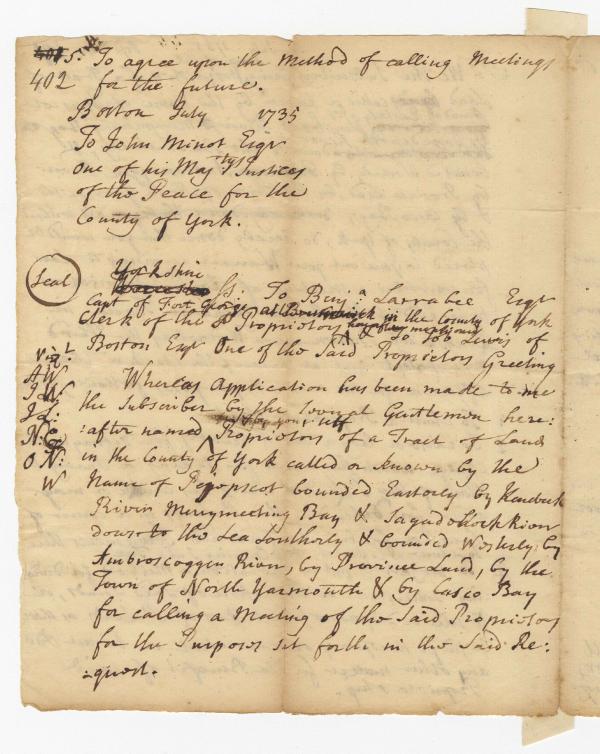 5. To agree upon the Method of calling Meetings
402 for the future.
Boston July 1735
To John Minot Esqr
one of his Majtys Justices
of the Peace for the
County of York.
Seal
Yorkshire
Ss: To Benja Larrabee Esqr
Capt of Fort George at Brunswick in the County of York
Clerk of the Proprietors & To Job Lewis of
Boston Esqr One of the Said Proprietors Greeting
Whereas Application has been made to me
the Subscriber by the Several Gentlemen here:
:after named Proprietors of a Tract of Land
in the County of York called or known by the
Name of Pejepscot bounded Easterly by Kenebeck
River Merrymeeting Bay & Sagadehock River
down to the Sea Southerly & bounded Westerly by
Ambroscoggen River, by Province Land, by the
Town of North Yarmouth & by Casco Bay
for calling a Meeting of the Said Proprietors
for the Purposes set forth in the Said Re:
:quest.
A W
J W
J L:
N: G
O N:
W